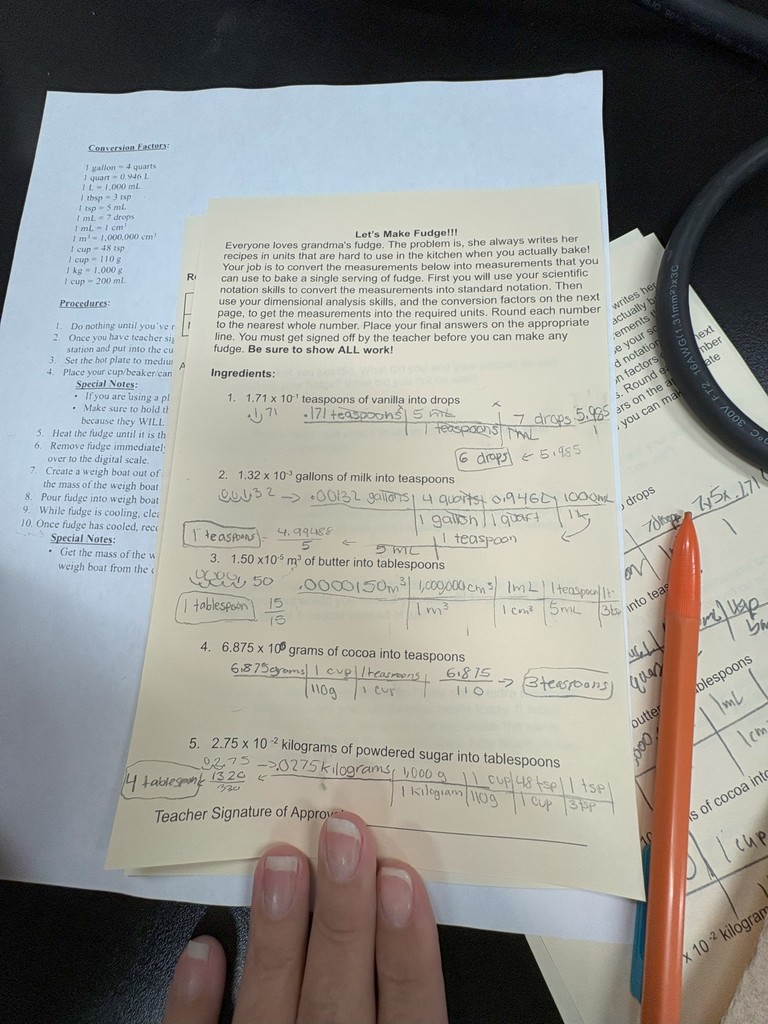 Conversion Factors:
1 gallon = 4 quarts
1 quart = 0.946 L
1 L = 1,000 mL
1 tbsp = 3 tsp
1 tsp = 5 mL
1 mL = 7 drops
1 mL = 1 cm³
1 m³ = 1,000,000 cm³
1 cup = 48 tsp
1 cup = 110 g
1 kg = 1,000 g
1 cup = 200 mL
Procedures:
1. Do nothing until you've r
2. Once you have teacher si
station and put into the cu
3. Set the hot plate to mediu
4. Place your cup/beaker/can
Special Notes:
• If you are using a pl
• Make sure to hold th
because they WILL
5. Heat the fudge until it is th
6. Remove fudge immediately
over to the digital scale.
7. Create a weigh boat out of
the mass of the weigh boat
8. Pour fudge into weigh boat
9. While fudge is cooling, clea
10. Once fudge has cooled, reco
Special Notes:
• Get the mass of the w
weigh boat from the
Let's Make Fudge!!!
Everyone loves grandma's fudge. The problem is, she always writes her
recipes in units that are hard to use in the kitchen when you actually bake!
Your job is to convert the measurements below into measurements that you
can use to bake a single serving of fudge. First you will use your scientific
notation skills to convert the measurements into standard notation. Then
use your dimensional analysis skills, and the conversion factors on the next
page, to get the measurements into the required units. Round each number
to the nearest whole number. Place your final answers on the appropriate
line. You must get signed off by the teacher before you can make any
fudge. Be sure to show ALL work!
Ingredients:
1. 1.71 x 10⁻¹ teaspoons of vanilla into drops
.171 teaspoons 5 mL 7 drops 5.985
1 teaspoons 1mL 1
6 drops ← 5.985
2. 1.32 x 10⁻³ gallons of milk into teaspoons
→ .00132 gallons 4 quarts 0.946L 1000mL
1 gallon 1 quart 1L
1 teaspoons = 4.99488 ← 1 teaspoon
5 5 mL
3. 1.50 x 10⁻⁵ m³ of butter into tablespoons
.0000150m³ 1,000,000cm³ 1mL 1teaspoon 1t
1 tablespoon 15 1m³ 1cm³ 5mL 3tsp
15
4. 6.875 x 10⁰ grams of cocoa into teaspoons
6.875grams 1 cup 1teaspoons 6.875 → 3teaspoons
110g 1 cup 110
5. 2.75 x 10⁻² kilograms of powdered sugar into tablespoons
→ .0275 kilograms 1,000 g 1 cup 48 tsp 1 tsp
4 tablespoons 1320 ← 1 kilogram 110g 1 cup 3tsp
330
Teacher Signature of Approv
writes her
actually b
notation
n factors
Round e
on the a
you can mak
next
mber
ate
drops
7x5x.171
1
into teas
tablespoons
1mL
1cm
s of cocoa into
1 cup
x 10⁻² kilogram